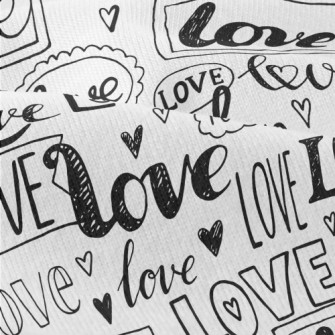 love
LOVE
love
love
VE
love
LOVE
L
ove
love
LOVE